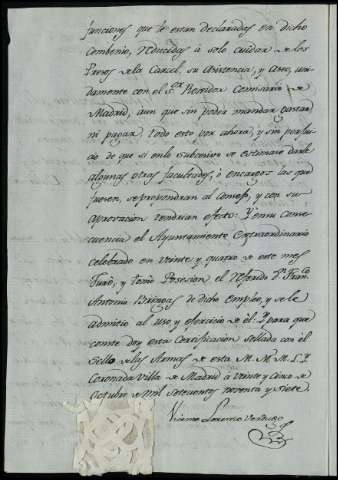 funciones que le estan declaradas en dicho
Combenio, reducidas à solo cuidar de los
Presos de la Carcel, su Asistencia, y Aseo, uni-
damente con el S.or Regidor Comisario de
Madrid, aun que sin poder mandar gastar
ni pagar. Todo esto por ahora, y sin perjui-
cio de que si en lo subcesivo se estimare darle
algunas otras facultades, ò encargos las que
fueren, se propondran al Consejo, y con su
aprovacion tendrian efecto: Y en su conse-
cuencia el Ayuntamiento Extraordinario
celebrado en veinte y quatro de este mes
Juró, y tomó Posesion el referido D.n Fran.co
Antonio Bringas de dicho empleo, y se le
admitio al uso y exercicio de èl: Y para que
conste doy esta Certificacion sellada con el
Sello de las Armas de esta M. N. M. L. Y
Coronada Villa de Madrid à veinte y cinco de
Octubre de mil setecientos noventa y siete.
Vicente Lorenzo Verdugo